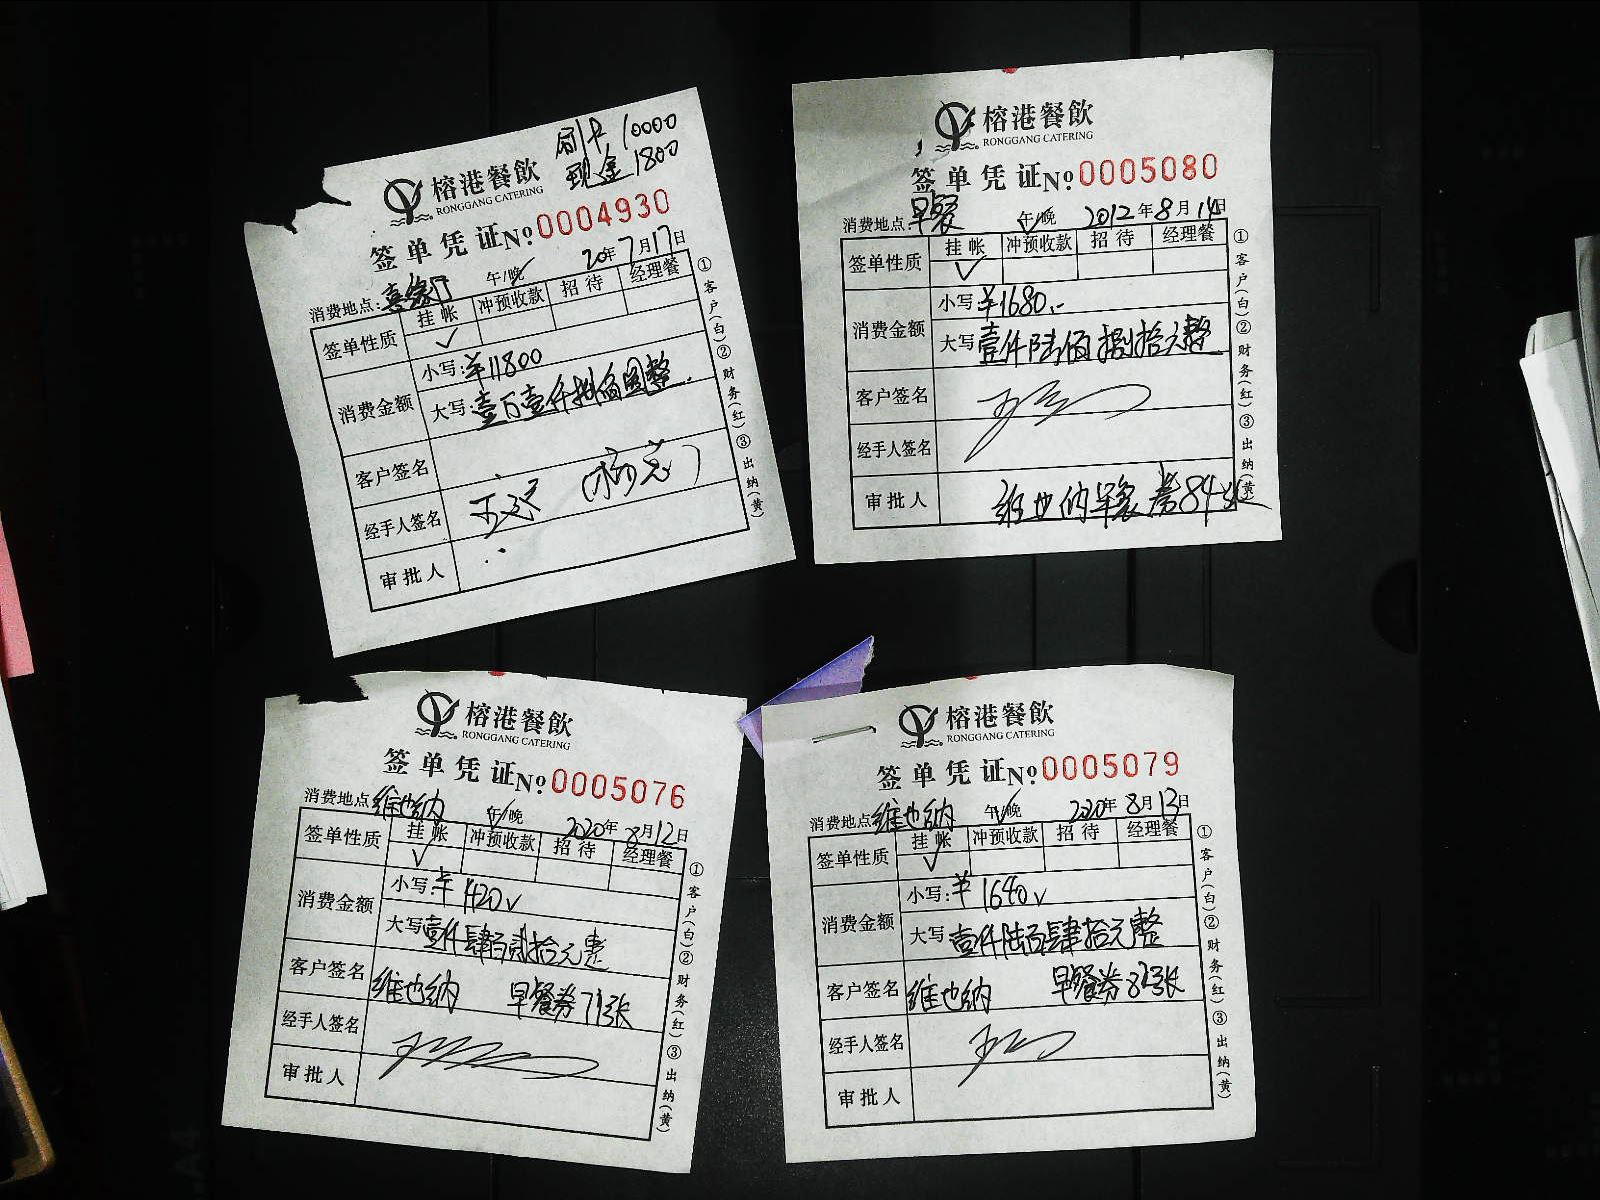 刷卡 10000
现金 1800
榕港餐飲
RONGGANG CATERING
签单凭证 № 0004930
消费地点: 喜缘厅 午/晚 20年7月17日
签单性质 挂帐 冲预收款 招待 经理餐
✓
消费金额 小写: ¥11800
大写: 壹万壹仟捌佰圆整
客户签名
经手人签名
审批人
①客户(白)②财务(红)③出纳(黄)
榕港餐飲
RONGGANG CATERING
签单凭证 № 0005080
消费地点: 早餐 午/晚 2012年8月14日
签单性质 挂帐 冲预收款 招待 经理餐
✓
消费金额 小写 ¥1680.-
大写 壹仟陆佰捌拾元整
客户签名
经手人签名
审批人 维也纳早餐券84张
①客户(白)②财务(红)③出纳(黄)
榕港餐飲
RONGGANG CATERING
签单凭证 № 0005076
消费地点 维也纳 午/晚 2020年8月12日
签单性质 挂帐 冲预收款 招待 经理餐
✓
消费金额 小写: ¥1420
大写 壹仟肆百贰拾元整
客户签名 维也纳 早餐券71张
经手人签名
审批人
①客户(白)②财务(红)③出纳(黄)
榕港餐飲
RONGGANG CATERING
签单凭证 № 0005079
消费地点 维也纳 午/晚 2020年8月13日
签单性质 挂帐 冲预收款 招待 经理餐
✓
消费金额 小写: ¥1640
大写 壹仟陆百肆拾元整
客户签名 维也纳 早餐券82张
经手人签名
审批人
①客户(白)②财务(红)③出纳(黄)